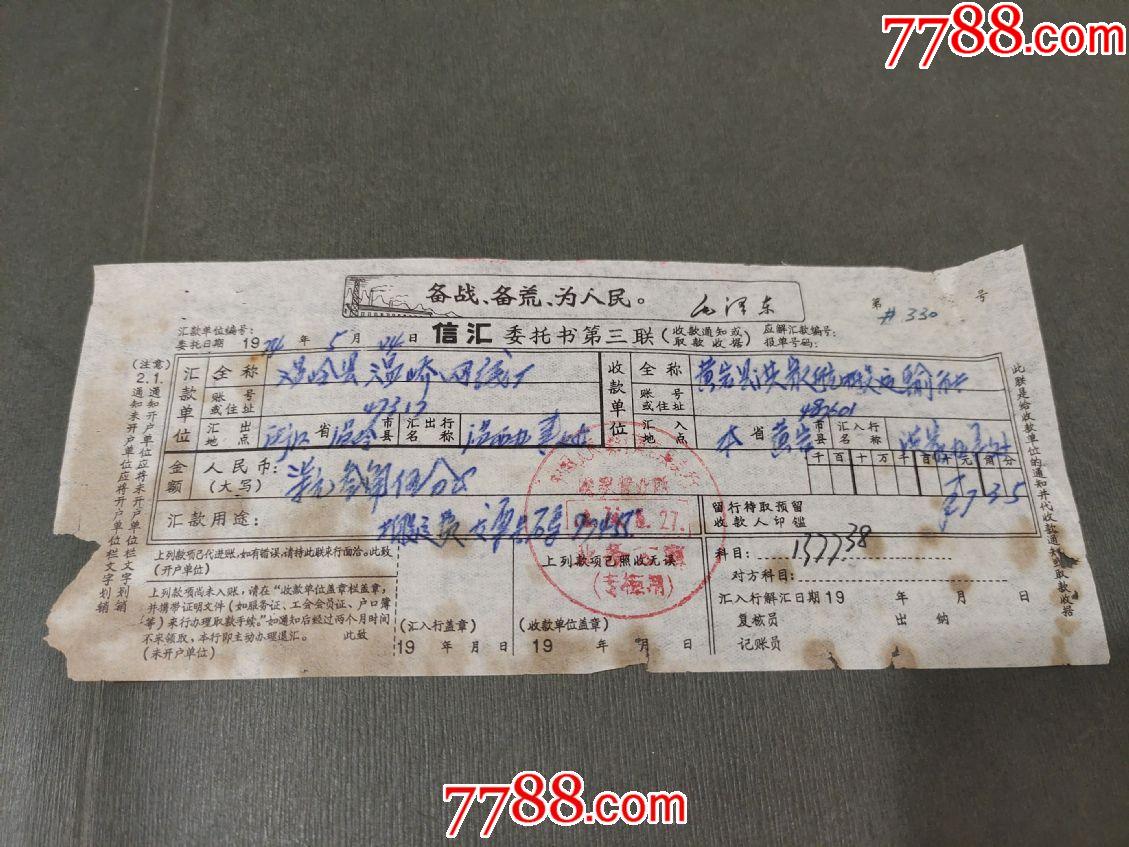 7788.com
备战、备荒、为人民。
毛泽东
第 #330 号
汇款单位编号：
委托日期 1974年5月24日
信汇 委托书第三联（收款通知或取款收据）
应解汇款编号：
报单号码：
（注意）
1.通知未开户单位应将开户单位栏文字划销
2.通知开户单位应将未开户单位栏文字划销
汇款单位
全称 温岭县温峤
账号或住址 47317
汇出地点 浙江省温岭市县
汇出行名称
收款单位
全称 黄岩县洪家 运输社
账号或住址
汇入地点 本省黄岩市县
汇入行名称 洪家
金额
人民币：
（大写） 柒元叁角伍分
千百十万千百十元角分
¥735
汇款用途：
留行待取预留
收款人印鉴
上列款项已代进账，如有错误，请持此联来行面洽。此致
（开户单位）
上列款项尚未入账，请在“收款单位盖章栏盖章，
并携带证明文件（如服务证、工会会员证、户口簿
等）来行办理取款手续。”如通知后经过两个月时间
不采领取，本行即主动办理退汇。 此致
（未开户单位）
（汇入行盖章）
19 年 月 日
上列款项已照收无误
（收款单位盖章）
19 年 月 日
科目：
137738
对方科目：
汇入行解汇日期19 年 月 日
复核员 出纳
记账员
此联是给收款单位的通知并代收款通知或取款收据
7788.com